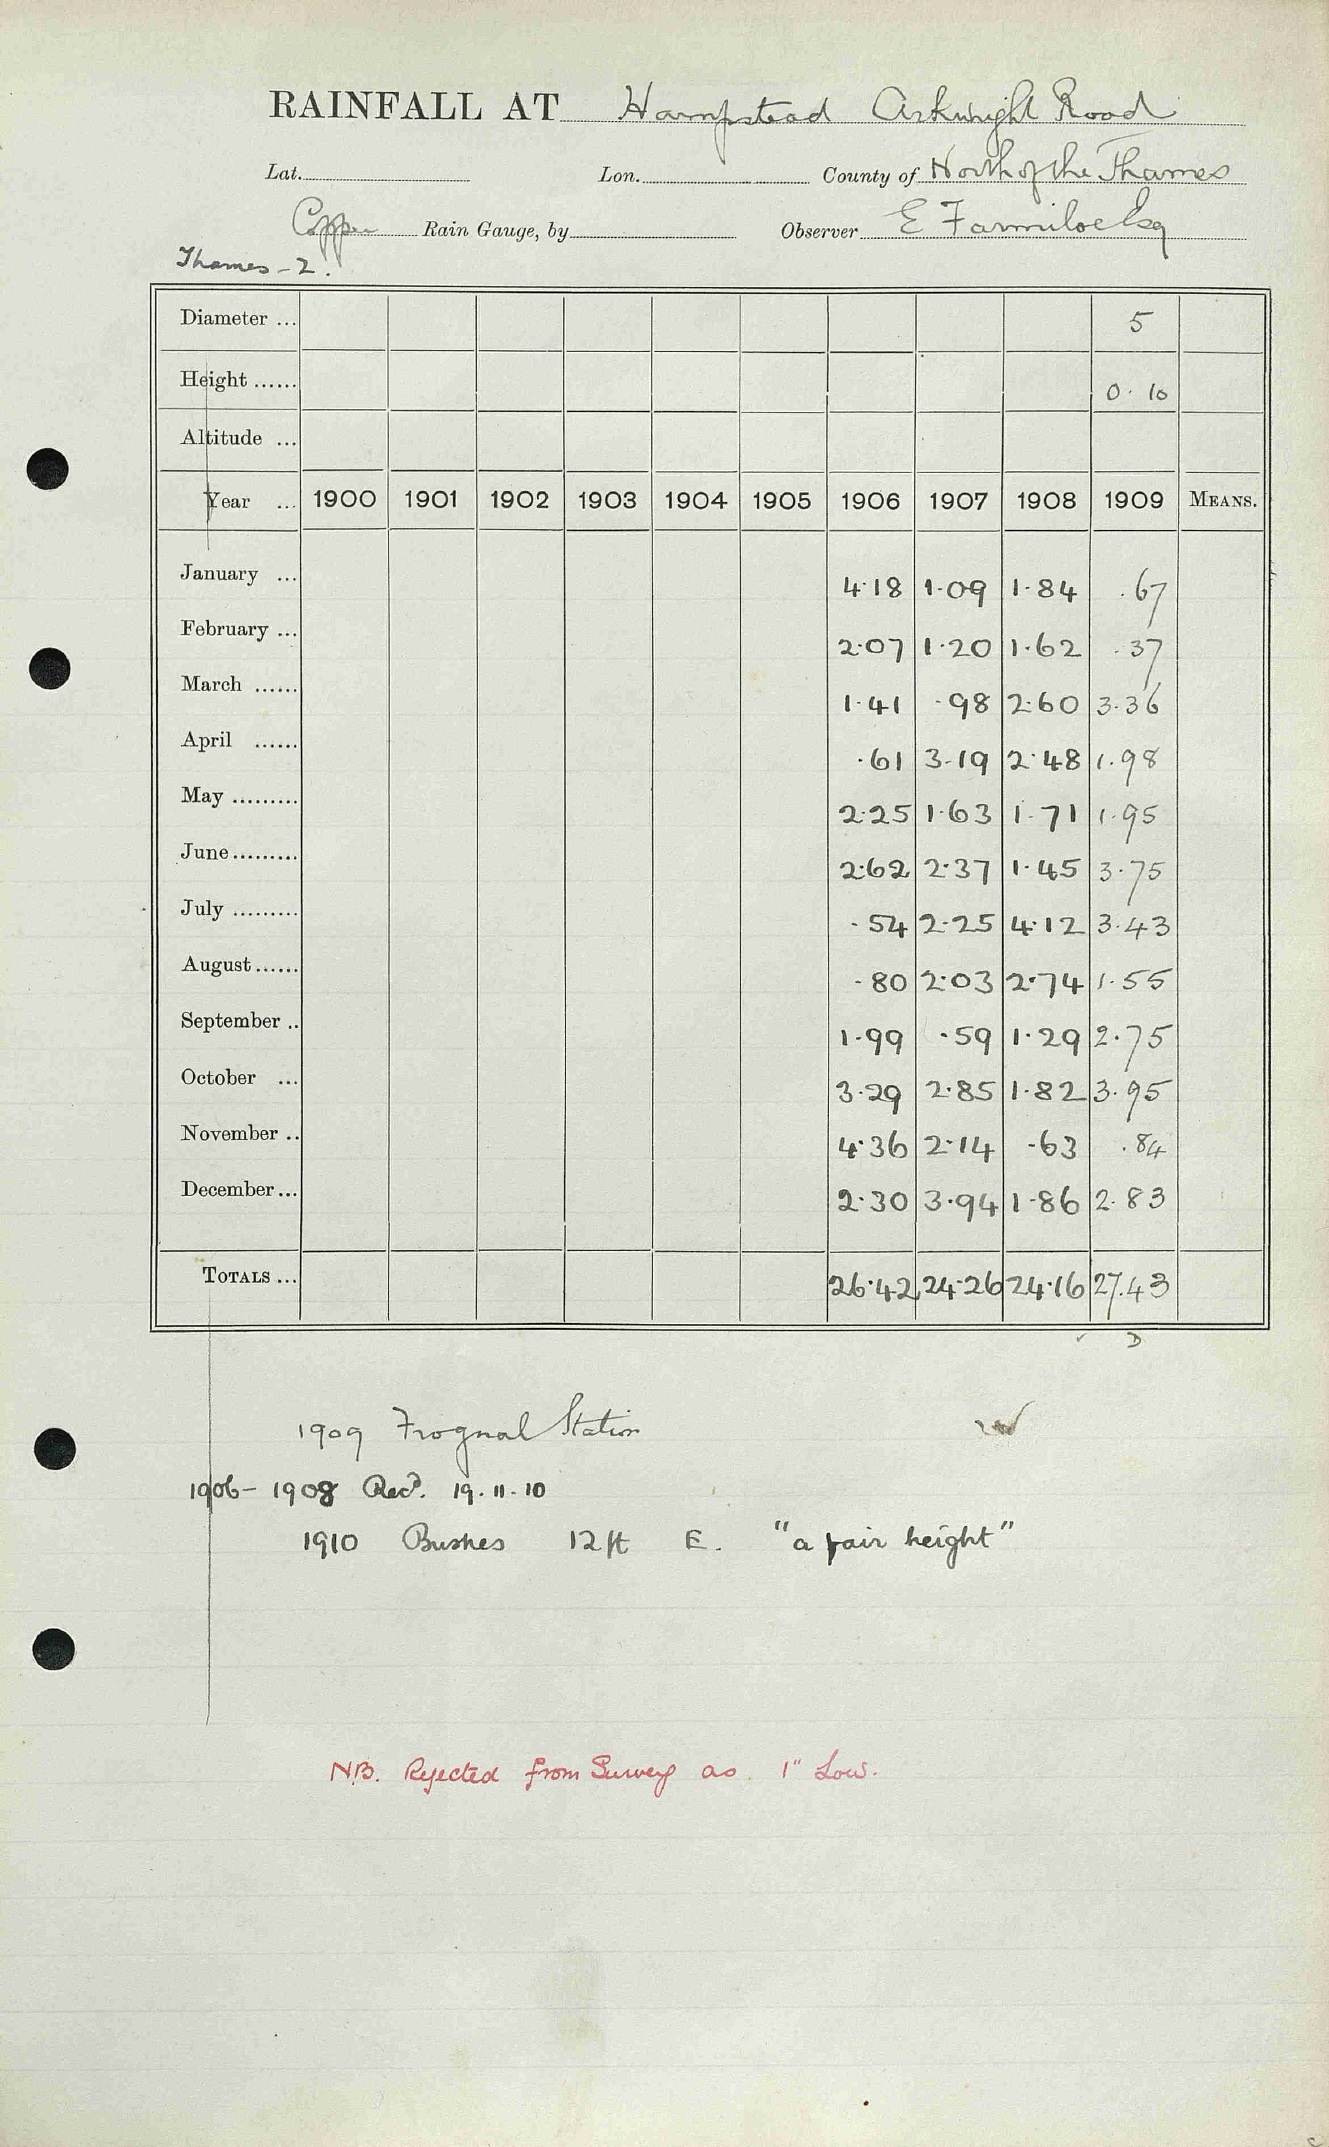 RAINFALL AT Hampstead Arkwright Road
Lat. Lon. County of North of the Thames
Copper Rain Gauge, by Observer E Farmiloe Esq
Thames - 2.
Diameter ... 5
Height ...... 0.10
Altitude ...
Year ... 1900 1901 1902 1903 1904 1905 1906 1907 1908 1909 MEANS.
January ... 4.18 1.09 1.84 .67
February ... 2.07 1.20 1.62 .37
March ...... 1.41 .98 2.60 3.36
April ...... .61 3.19 2.48 1.98
May ......... 2.25 1.63 1.71 1.95
June......... 2.62 2.37 1.45 3.75
July ......... .54 2.25 4.12 3.43
August...... .80 2.03 2.74 1.55
September .. 1.99 .59 1.29 2.75
October ... 3.29 2.85 1.82 3.95
November .. 4.36 2.14 .63 .84
December... 2.30 3.94 1.86 2.83
TOTALS ... 26.42 24.26 24.16 27.43
D
1909 Frognal Station
1906 - 1908 Recd. 19.11.10
1910 Bushes 12 ft E. "a fair height"
N.B. Rejected from Survey as 1" Low.